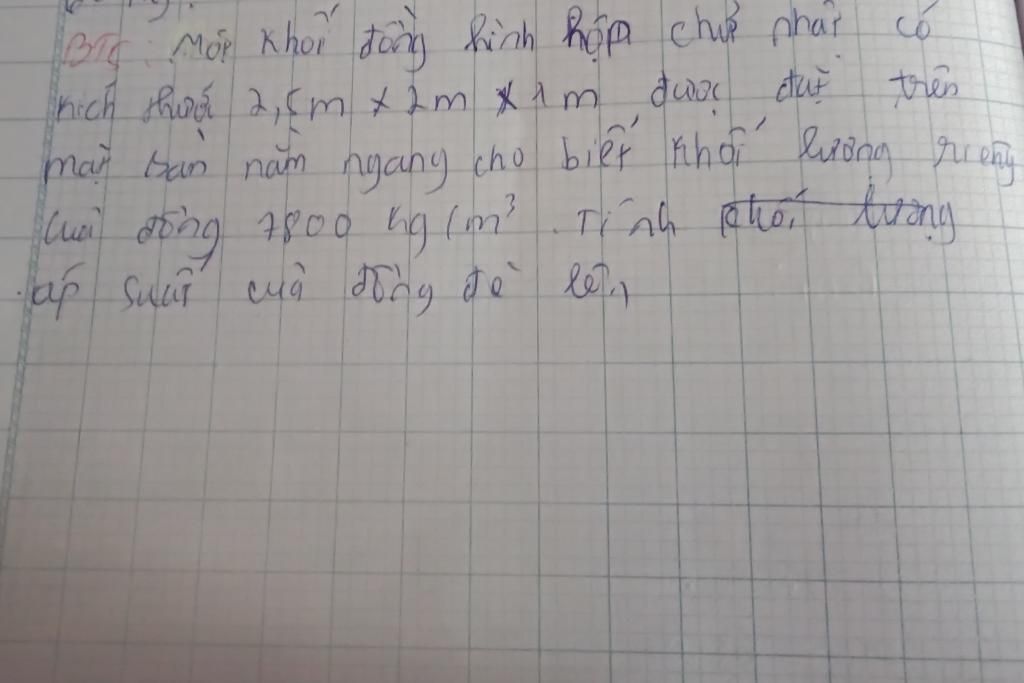 BT5: Một khối đồng hình hộp chữ nhật có
kích thước 2,5m x 2m x 1m được đặt trên
mặt bàn nằm ngang cho biết khối lượng riêng
của đồng 7800 kg/m³. Tính khối lượng
áp suất của đồng đè lên